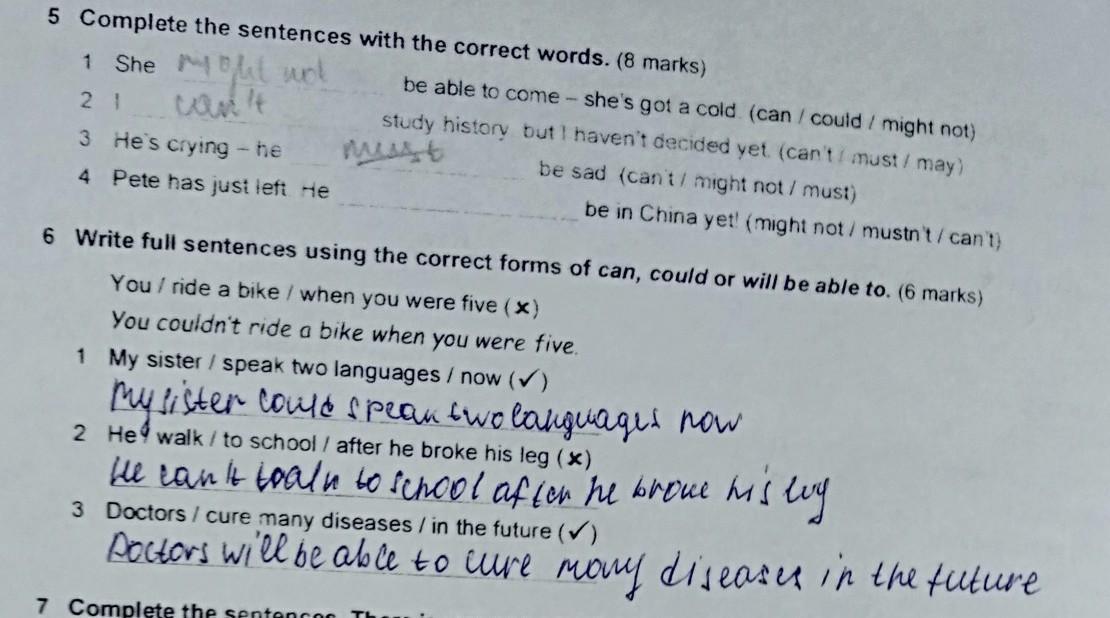 5 Complete the sentences with the correct words. (8 marks)
1 She might not be able to come – she's got a cold. (can / could / might not)
2 I can't study history, but I haven't decided yet. (can't / must / may)
3 He's crying – he must be sad. (can't / might not / must)
4 Pete has just left. He be in China yet! (might not / mustn't / can't)
6 Write full sentences using the correct forms of can, could or will be able to. (6 marks)
You / ride a bike / when you were five (✗)
You couldn't ride a bike when you were five.
1 My sister / speak two languages / now (✓)
My sister could speak two languages now
2 He / walk / to school / after he broke his leg (✗)
He can't walk to school after he broke his leg
3 Doctors / cure many diseases / in the future (✓)
Doctors will be able to cure many diseases in the future
7 Complete the sentences.